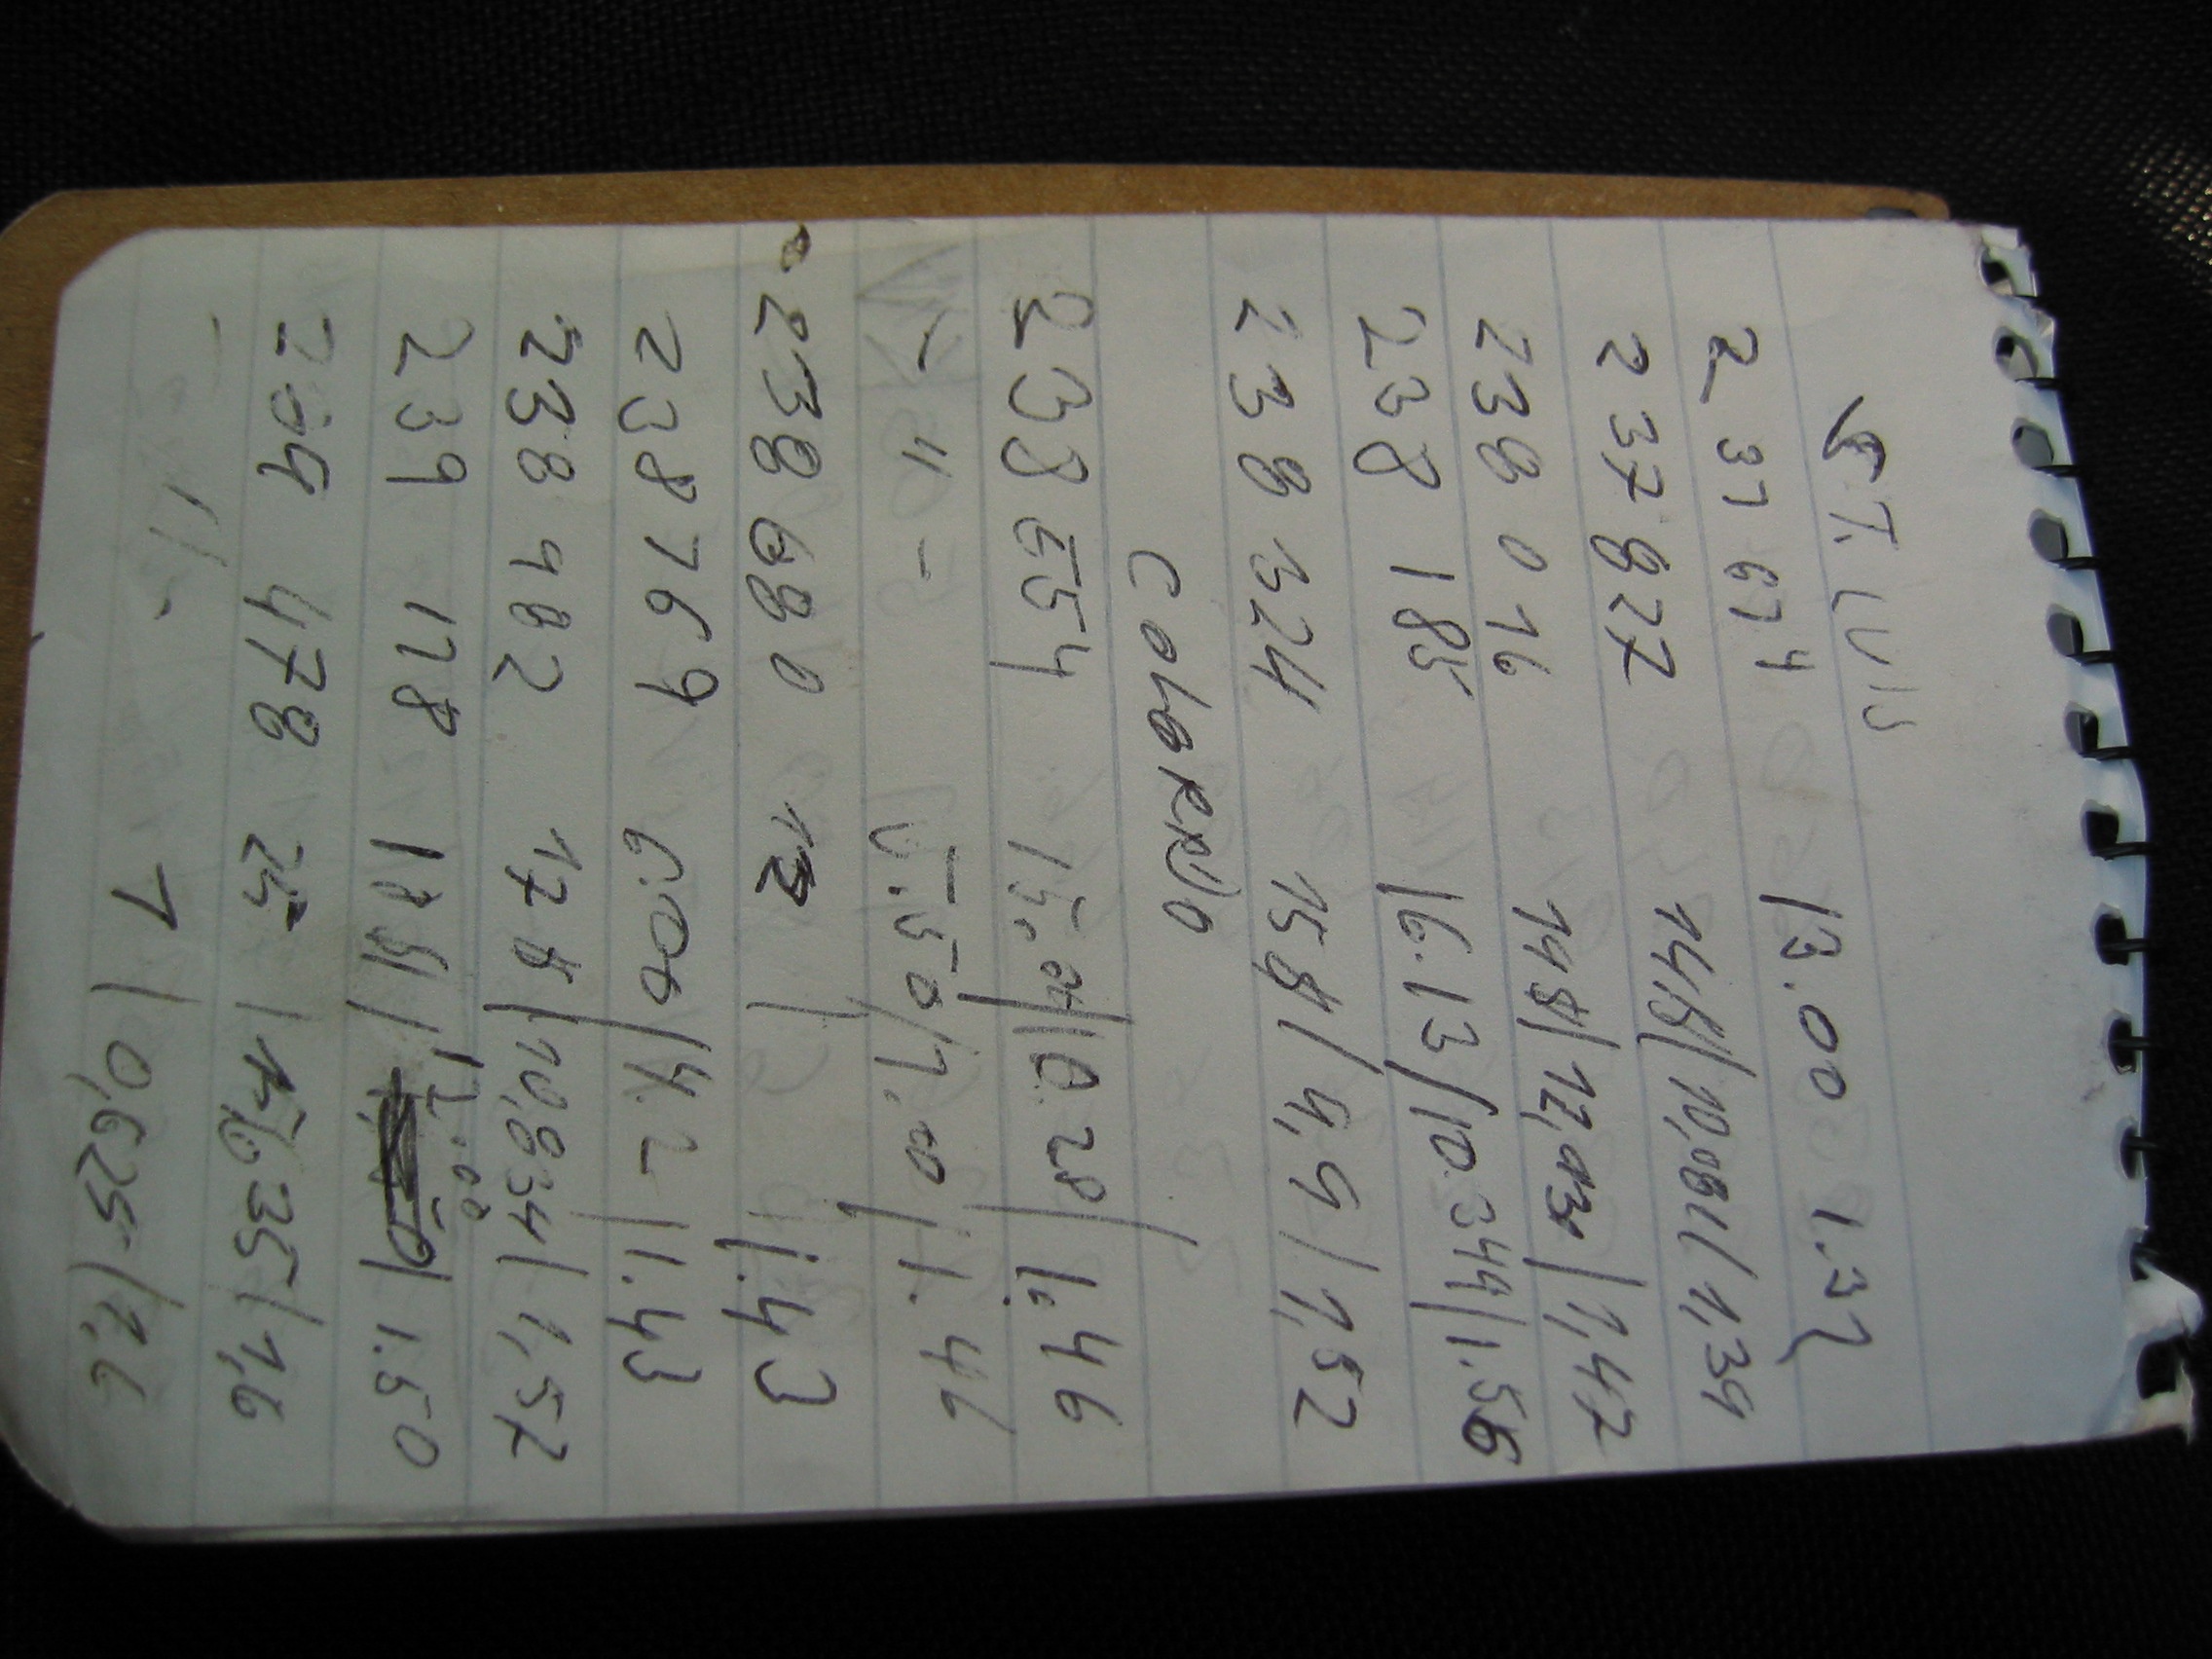 ST. LUIS
237674 13.00 1.37
237827 14,8 / 10,081 / 1,39
238016 14 $ / 12,930 / 1,47
238 185 16.13 / 10.344 / 1.56
238 324 15 $ / 9,9 / 1,52
COLORADO
238 554 15.04 / 10 28 / 1.46
- 11 - 1.50 / 1.0 / 1.46
238680 12 / 1.43
238769 6.00 / 4 2 - / 1.43
238982 17 $ / 10,834 / 1,57
239 178 18 $ / 12.00 / 1.50
478 25 / 1,6
- 11 - 7 / 0,625 / 1,6